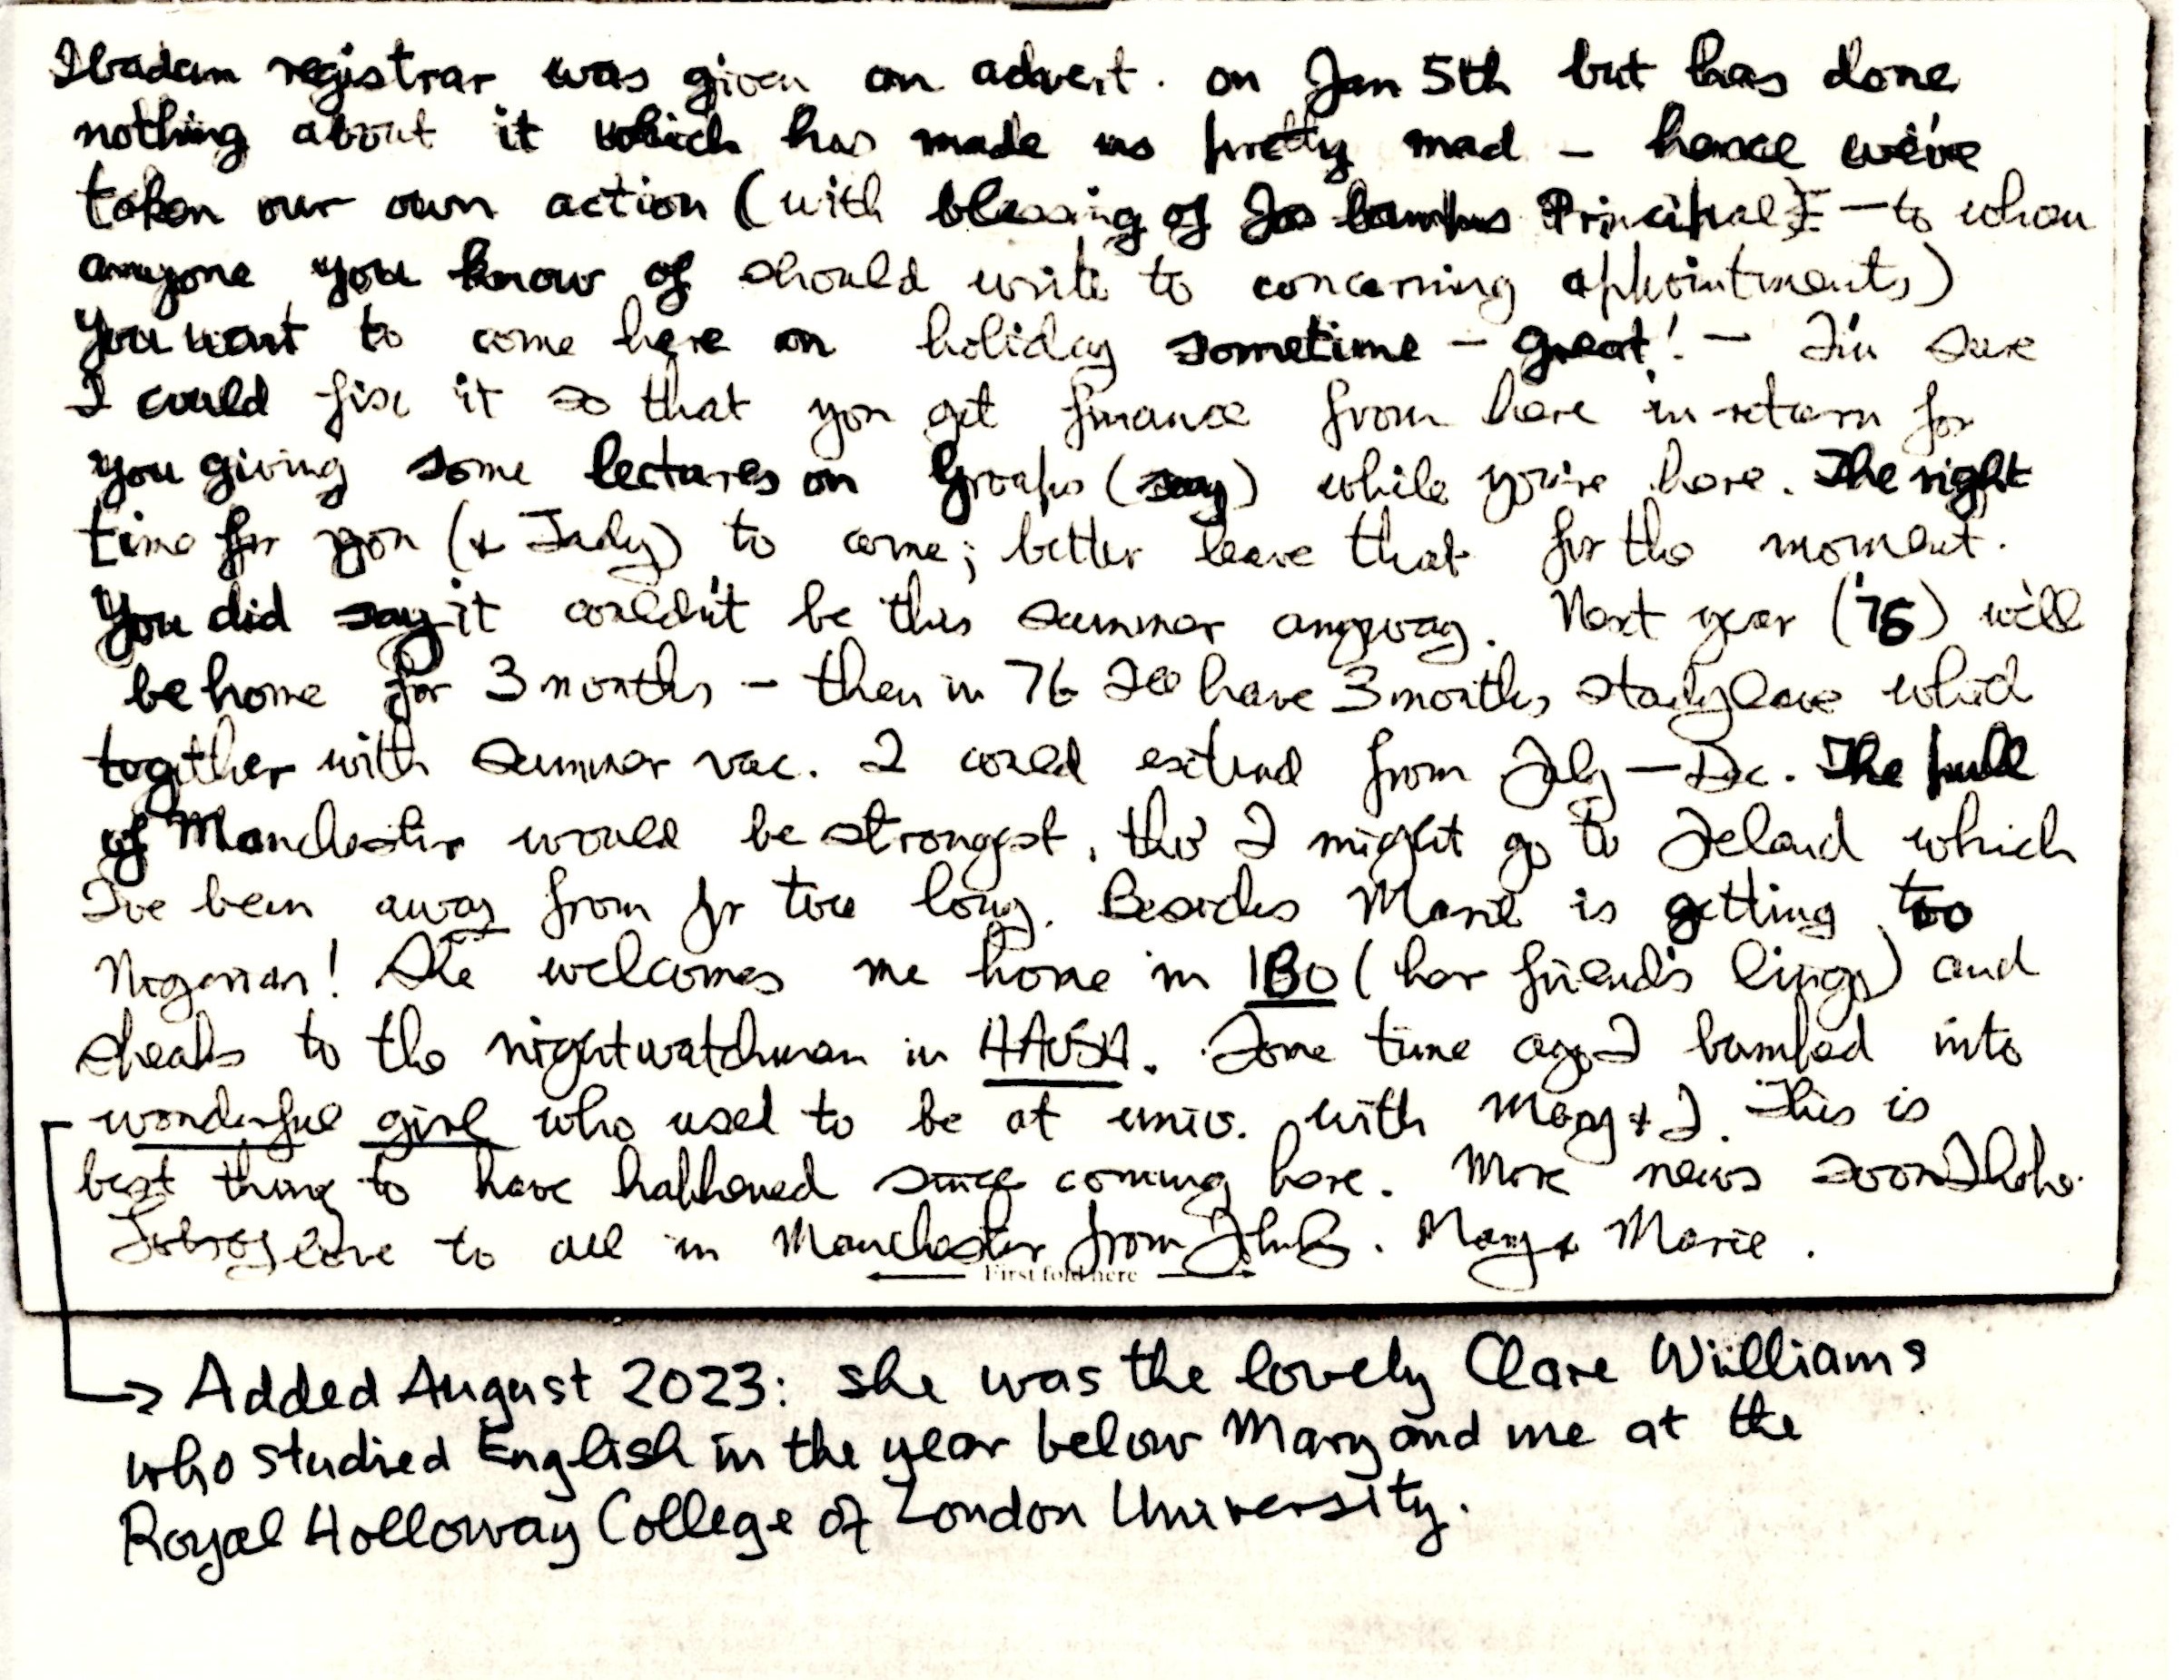 Ibadan registrar was given an advert. on Jan 5th but has done
nothing about it which has made us pretty mad – hence we've
taken our own action (with blessing of Jos Campus Principal – to whom
anyone you know of should write to concerning appointments)
You want to come here on holiday sometime – great! – I'm sure
I could fix it so that you get finance from here in return for
you giving some lectures on Groups (say) while you're here. The right
time for you (& Judy) to come; better leave that for the moment.
You did say it couldn't be this summer anyway. Next year ('75) we'll
be home for 3 months – then in 76 I'll have 3 months study leave which
together with summer vac. I could extend from July – Dec. The pull
of Manchester would be strongest, tho' I might go to Ireland which
I've been away from for too long. Besides Marie is getting too
Nigerian! She welcomes me home in IBO (her friend's lingo) and
speaks to the nightwatchman in HAUSA. Some time ago I bumped into
wonderful girl who used to be at univ. with Mary & I. This is
best thing to have happened since coming here. More news soon I hope.
love to all in Manchester from Mary & Marie.
← First fold here →
→ Added August 2023: she was the lovely Clare Williams
who studied English in the year below Mary and me at the
Royal Holloway College of London University.